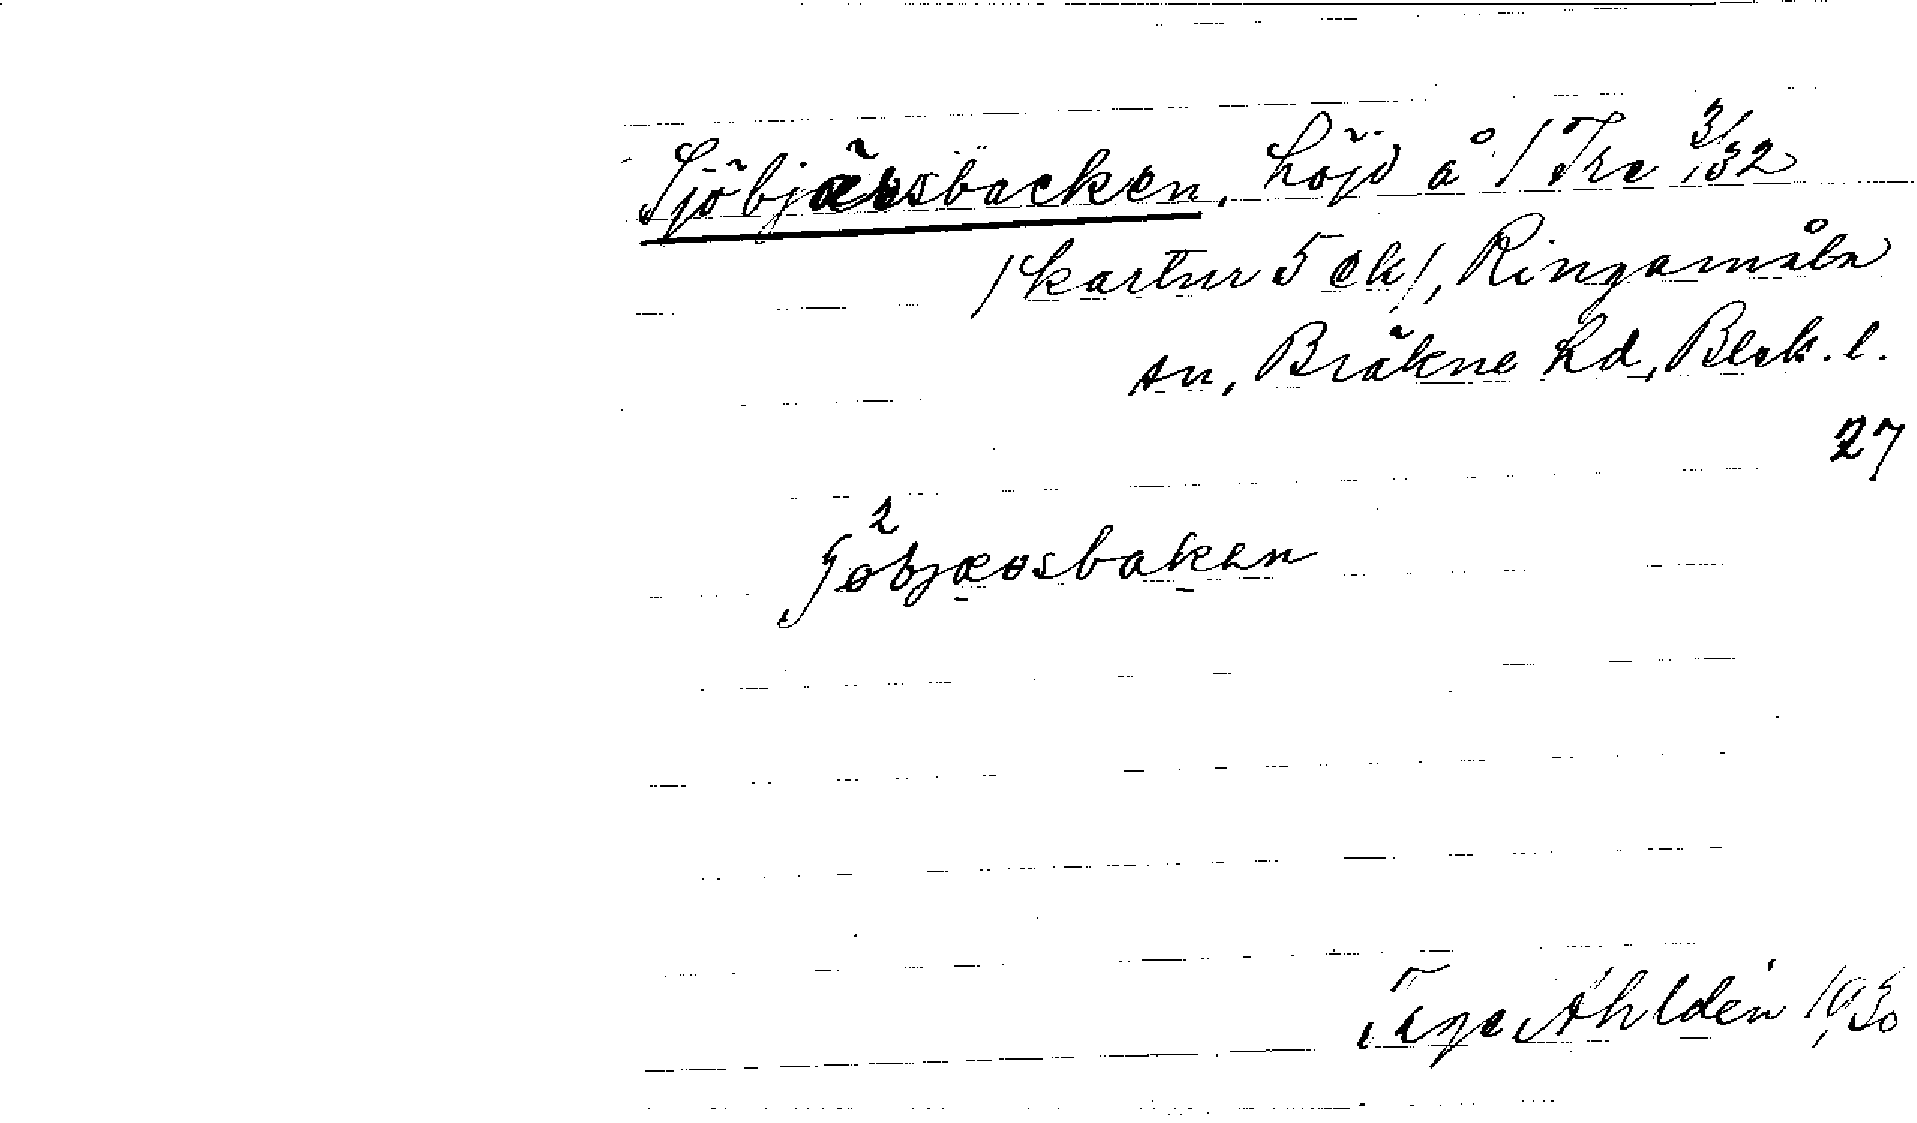 Sjöbjärsbacken, höjd å / Tra 3/32
/kartnr 5 ck/, Ringamåla
sn, Bräkne hd, Blek. l.
27
2
ʃøbjæosbaken
Tage Ahldén 1930